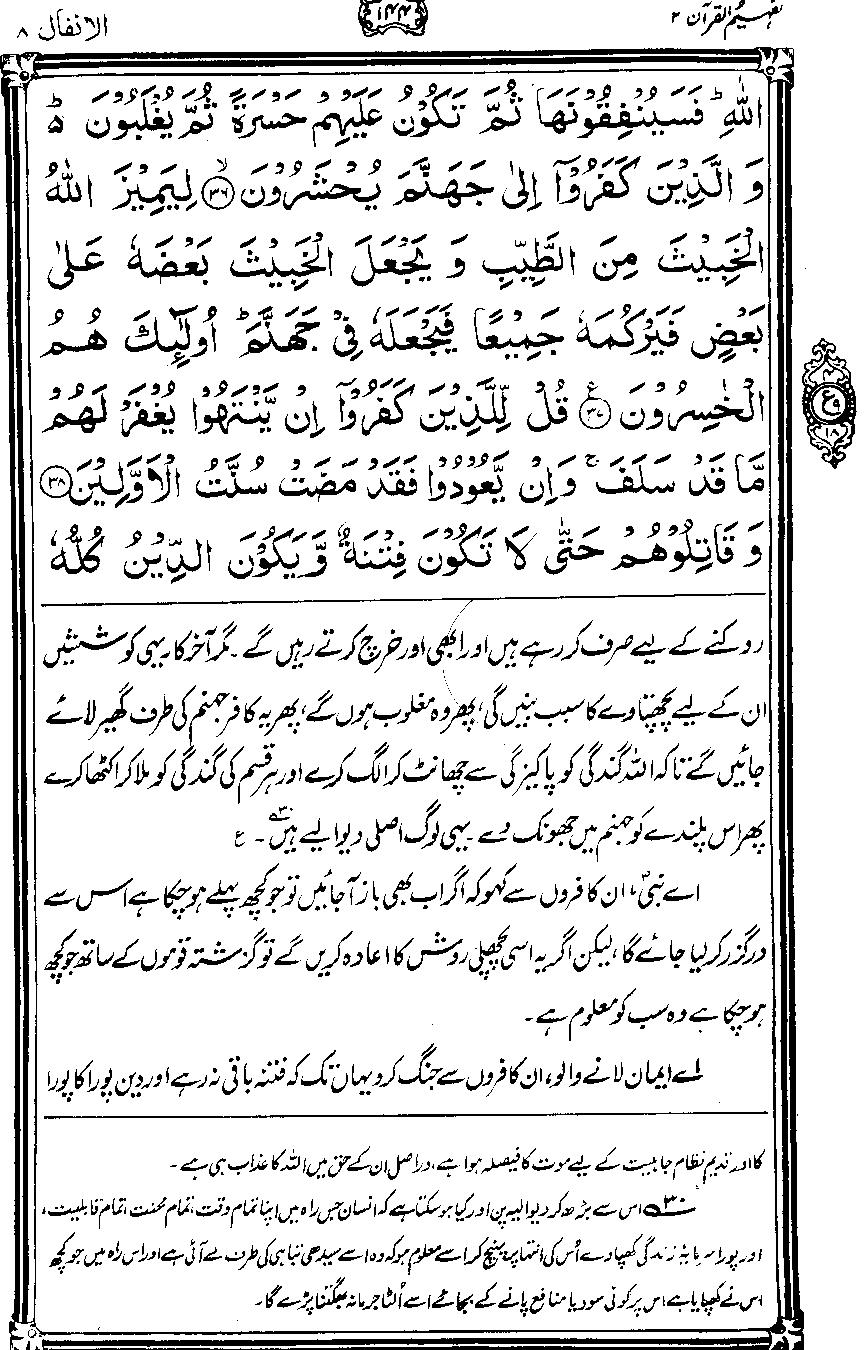 تفہیم القرآن ۲
۱۴۴
الانفال ۸
اللهِ ؕ فَسَيُنْفِقُوْنَهَا ثُمَّ تَكُوْنُ عَلَيْهِمْ حَسْرَةً ثُمَّ يُغْلَبُوْنَ ؕ۬
وَ الَّذِيْنَ كَفَرُوْۤا اِلٰى جَهَنَّمَ يُحْشَرُوْنَ ۙ﴿۳۶﴾ لِيَمِيْزَ اللهُ
الْخَبِيْثَ مِنَ الطَّيِّبِ وَ يَجْعَلَ الْخَبِيْثَ بَعْضَهٗ عَلٰى
بَعْضٍ فَيَرْكُمَهٗ جَمِيْعًا فَيَجْعَلَهٗ فِيْ جَهَنَّمَ ؕ اُولٰٓئِكَ هُمُ
الْخٰسِرُوْنَ ﴿۳۷﴾ع قُلْ لِّلَّذِيْنَ كَفَرُوْۤا اِنْ يَّنْتَهُوْا يُغْفَرْ لَهُمْ
مَّا قَدْ سَلَفَ ۚ وَاِنْ يَّعُوْدُوْا فَقَدْ مَضَتْ سُنَّتُ الْاَوَّلِيْنَ ﴿۳۸﴾
وَ قَاتِلُوْهُمْ حَتّٰى لَا تَكُوْنَ فِتْنَةٌ وَّيَكُوْنَ الدِّيْنُ كُلُّهٗ
ع
۱۸
روکنے کے لیے صرف کر رہے ہیں اور ابھی اور خرچ کرتے رہیں گے۔ مگر آخر کار یہی کوششیں
ان کے لیے پچھتاوے کا سبب بنیں گی، پھر وہ مغلوب ہوں گے، پھر یہ کافر جہنم کی طرف گھیر لائے
جائیں گے تاکہ اللہ گندگی کو پاکیزگی سے چھانٹ کر الگ کرے اور ہر قسم کی گندگی کو ملا کر اکٹھا کرے
پھر اس پلندے کو جہنم میں جھونک دے۔ یہی لوگ اصلی دیوالیے ہیں۳۰۔ ع
اے نبیؐ، ان کافروں سے کہو کہ اگر اب بھی باز آجائیں تو جو کچھ پہلے ہو چکا ہے اس سے
درگزر کر لیا جائے گا، لیکن اگر یہ اسی پچھلی روش کا اعادہ کریں گے تو گزشتہ قوموں کے ساتھ جو کچھ
ہو چکا ہے وہ سب کو معلوم ہے۔
اے ایمان لانے والو، ان کافروں سے جنگ کرو یہاں تک کہ فتنہ باقی نہ رہے اور دین پورا کا پورا
کا اور قدیم نظام جاہلیت کے لیے موت کا فیصلہ ہوا ہے، دراصل ان کے حق میں اللہ کا عذاب ہی ہے۔
۳۰ اس سے بڑھ کر دیوالیہ پن اور کیا ہو سکتا ہے کہ انسان جس راہ میں اپنا تمام وقت، تمام محنت، تمام قابلیت،
اور پورا سرمایۂ زندگی کھپا دے اُس کی انتہا پر پہنچ کر اسے معلوم ہو کہ وہ اسے سیدھی تباہی کی طرف لے آئی ہے اور اس راہ میں جو کچھ
اس نے کھپایا ہے اس پر کوئی سود یا منافع پانے کے بجائے اسے اُلٹا جرمانہ بھگتنا پڑے گا۔